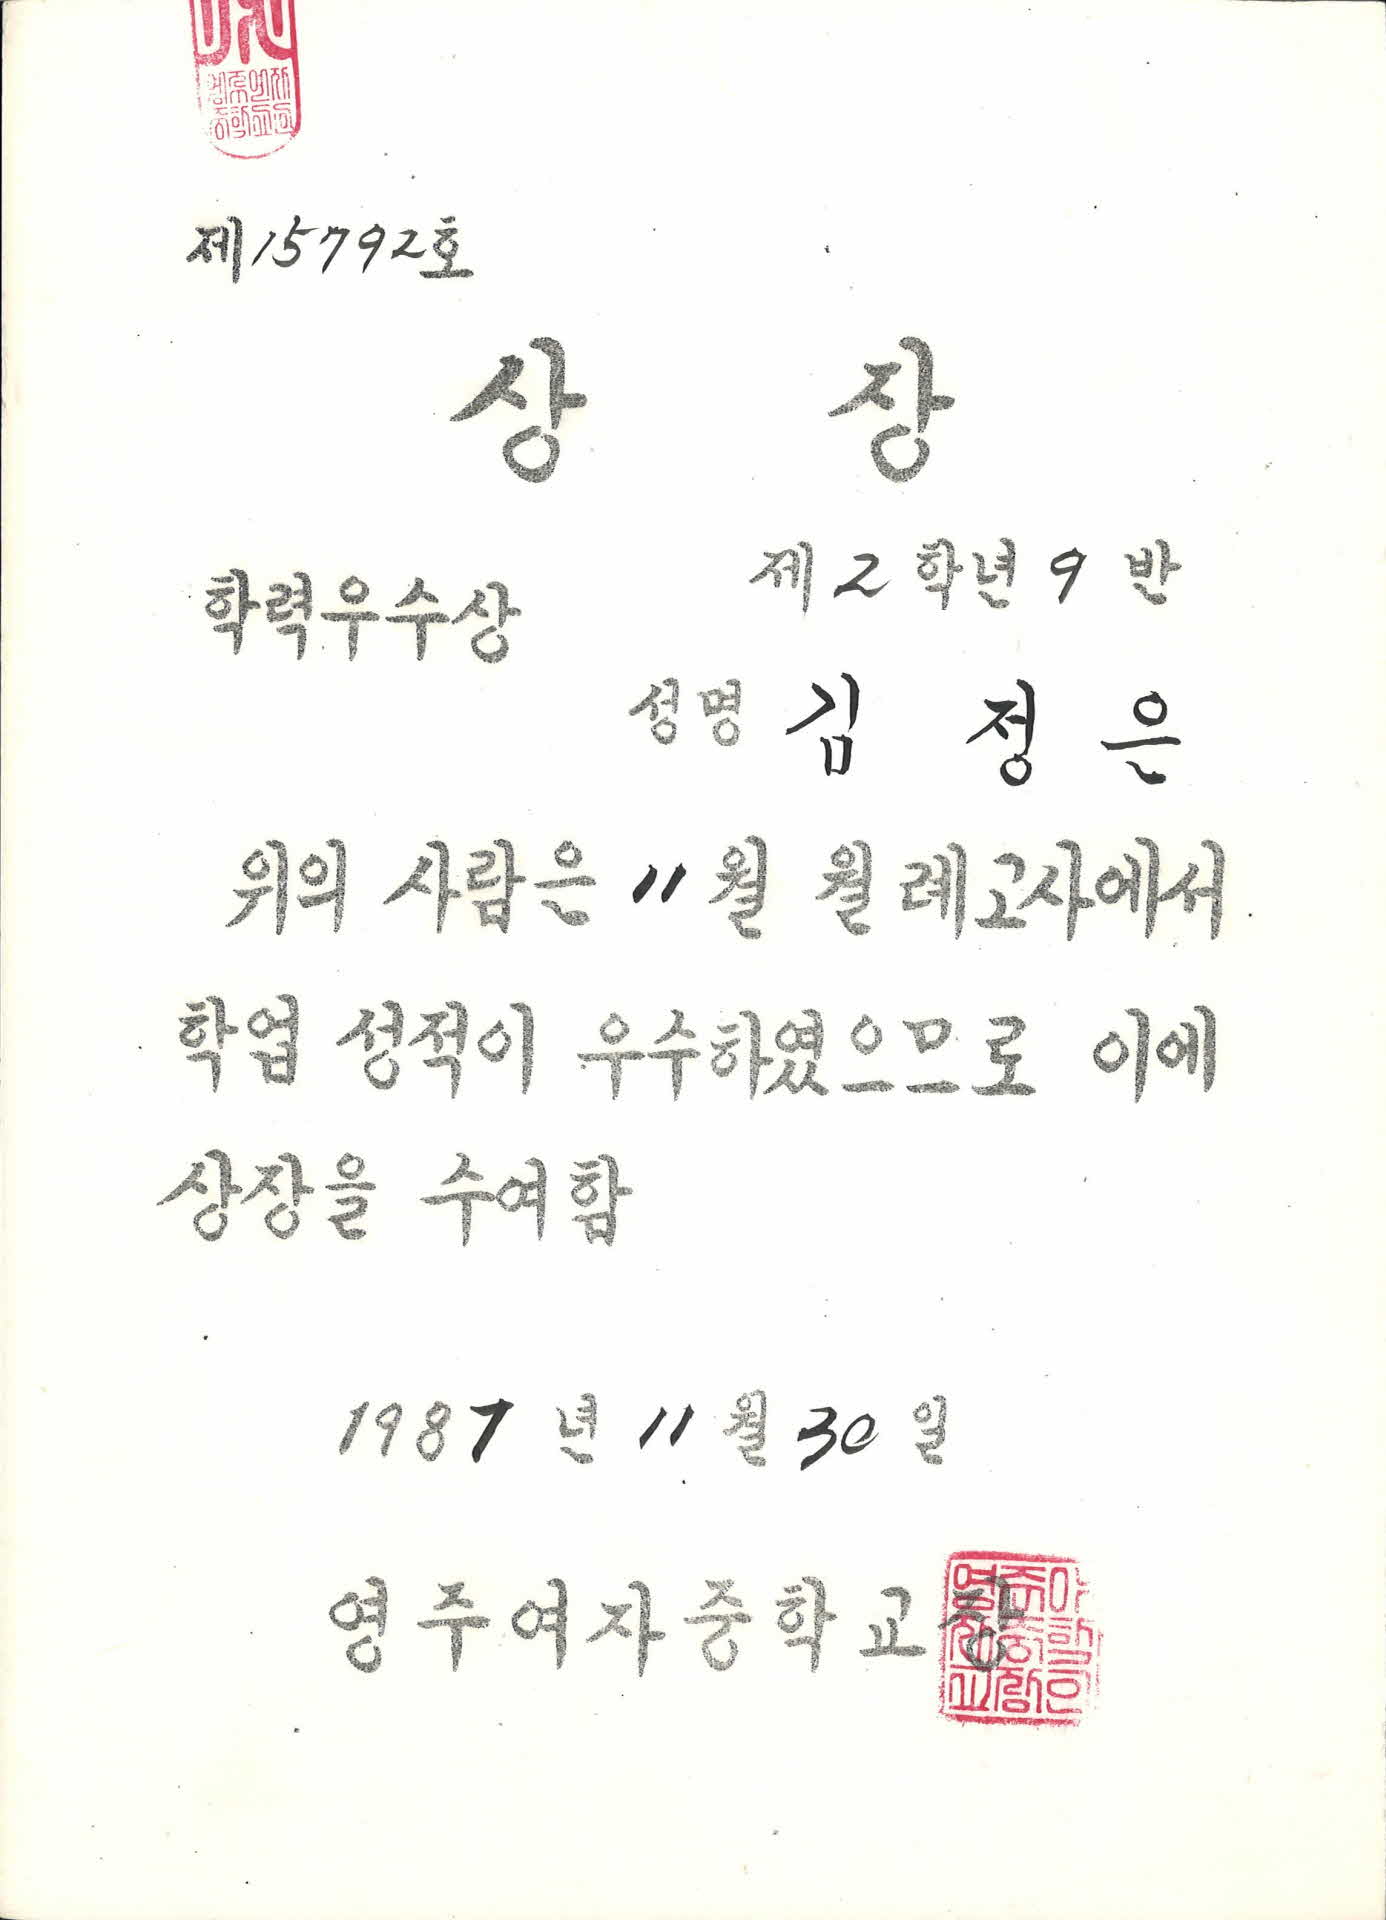 제15792호
상 장
제2학년9반
학력우수상
성명 김 정 은
위의 사람은 11월 월례고사에서
학업 성적이 우수하였으므로 이에
상장을 수여함
1987년 11월 30일
영주여자중학교장